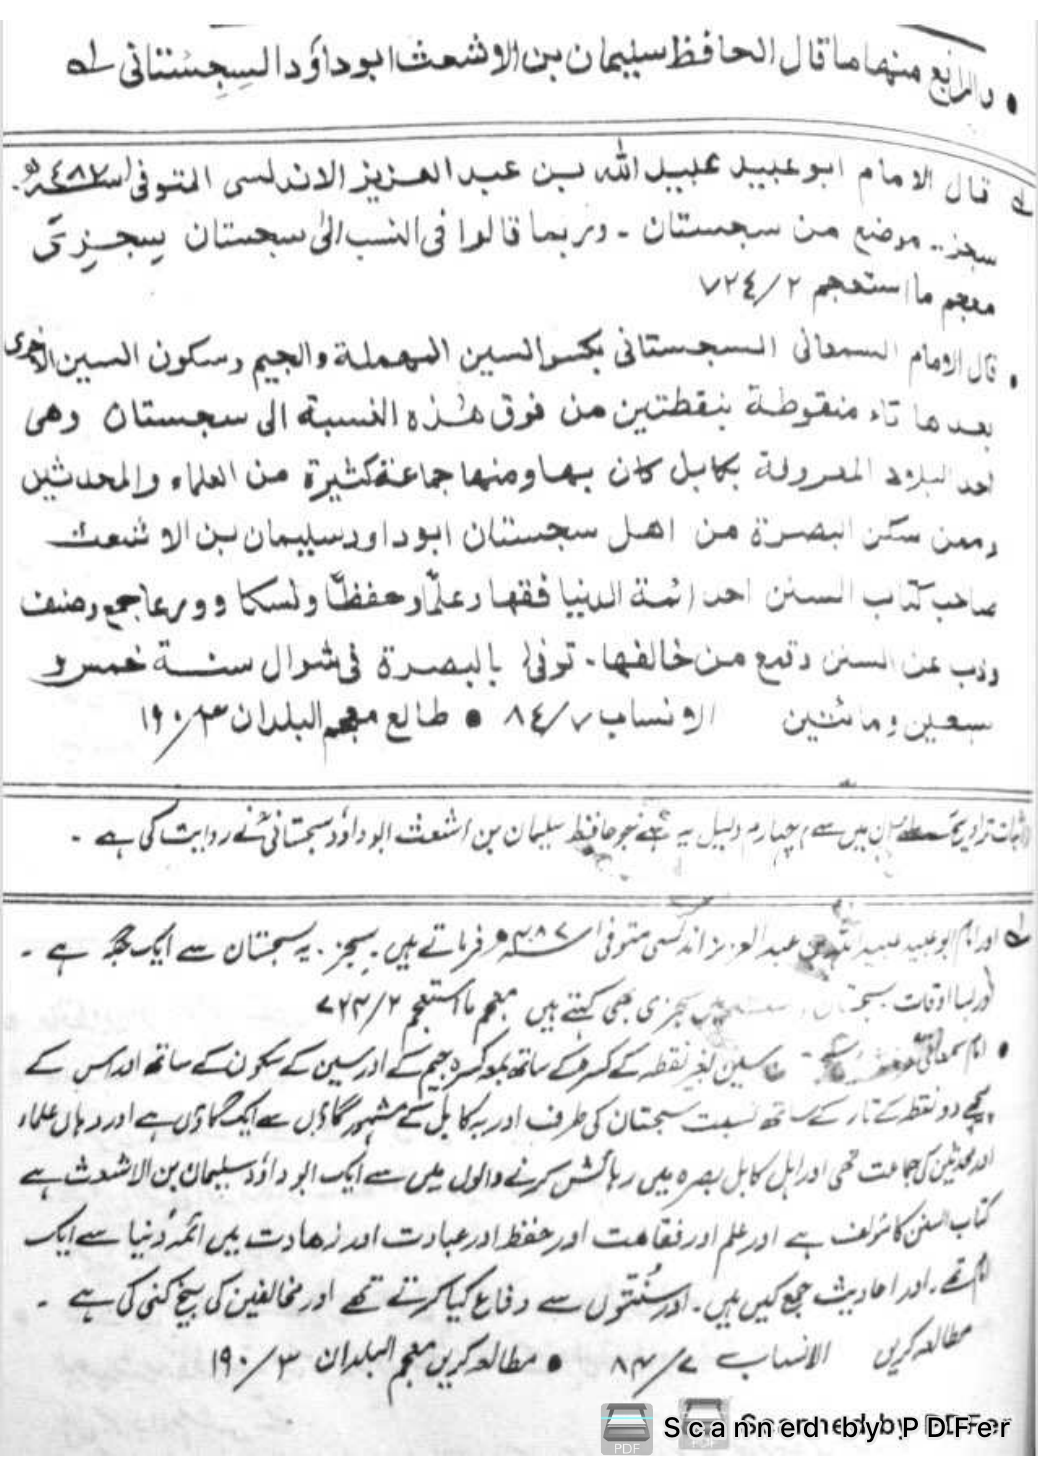 • والرابع منها ما قال الحافظ سليمان بن الاشعث ابو داؤد السِجِسْتانى لـه
لـه قال الامام ابو عبيد عبيد الله بن عبد العزيز الاندلسى المتوفى ٤٨٧
سجز.. موضع من سجستان - وربما قالوا فى النسب الىٰ سجستان سِجْزِىّ
معجم ما استعجم ٢/٧٢٤
• قال الامام السمعانى السجستانى بكسر السين المهملة والجيم وسكون السين الاخرى
بعدها تاء منقوطة بنقطتين من فوق هٰذه النسبة الى سجستان وهى
احد البلاد المعروفة بكابل كان بها ومنها جماعة كثيرة من العلماء والمحدثين
وممن سكن البصرة من اهل سجستان ابو داود سليمان بن الاشعث
صاحب كتاب السنن احد ائمة الدنيا فقها وعلمًا وحفظًا ونسكا وورعا جمع وصنف
وذب عن السنن وقمع من خالفها - توفى بالبصرة فى شوال سنة خمس و
سبعين ومائتين الانساب ٧/٨٤ • طالع معجم البلدان ٣/١٩٠
تراویح میں سے چہارم دلیل یہ ہے جو حافظ سلیمان بن اشعث ابو داؤد سجستانیؒ نے روایت کی ہے -
لـه اور امام ابو عبید عبید اللہ بن عبد العزیز اندلسی متوفی ۴۸۷ فرماتے ہیں - سجز - یہ سجستان سے ایک جگہ ہے -
اور بسا اوقات سجستان سجزی بھی کہتے ہیں معجم ما استعجم ۲/۷۲۴
• امام سمعانی سین بغیر نقطہ کے کسرہ کے ساتھ بمعہ کسرہ جیم کے اور سین کے سکون کے ساتھ اور اس کے
پیچھے دو نقطہ کے تار کے ساتھ نسبت سجستان کی طرف اور یہ کابل کے مشہور گاؤں سے ایک گاؤں ہے اور وہاں علماء
اور محدثین کی جماعت تھی اور اہل کابل بصرہ میں رہائش کرنے والوں میں سے ایک ابو داؤد سلیمان بن الاشعث ہے
کتاب السنن کا مؤلف ہے اور علم اور فقاہت اور حفظ اور عبادت اور زہادت میں ائمہ دُنیا سے ایک
امام تھے - اور احادیث جمع کیں ہیں - اور سُنتوں سے دفاع کیا کرتے تھے اور مخالفین کی بیخ کنی کی ہے -
مطالعہ کریں الانساب ۷/۸۴ • مطالعہ کریں معجم البلدان ۳/۱۹۰
Scanned by PDFer
Scanned by PDFer